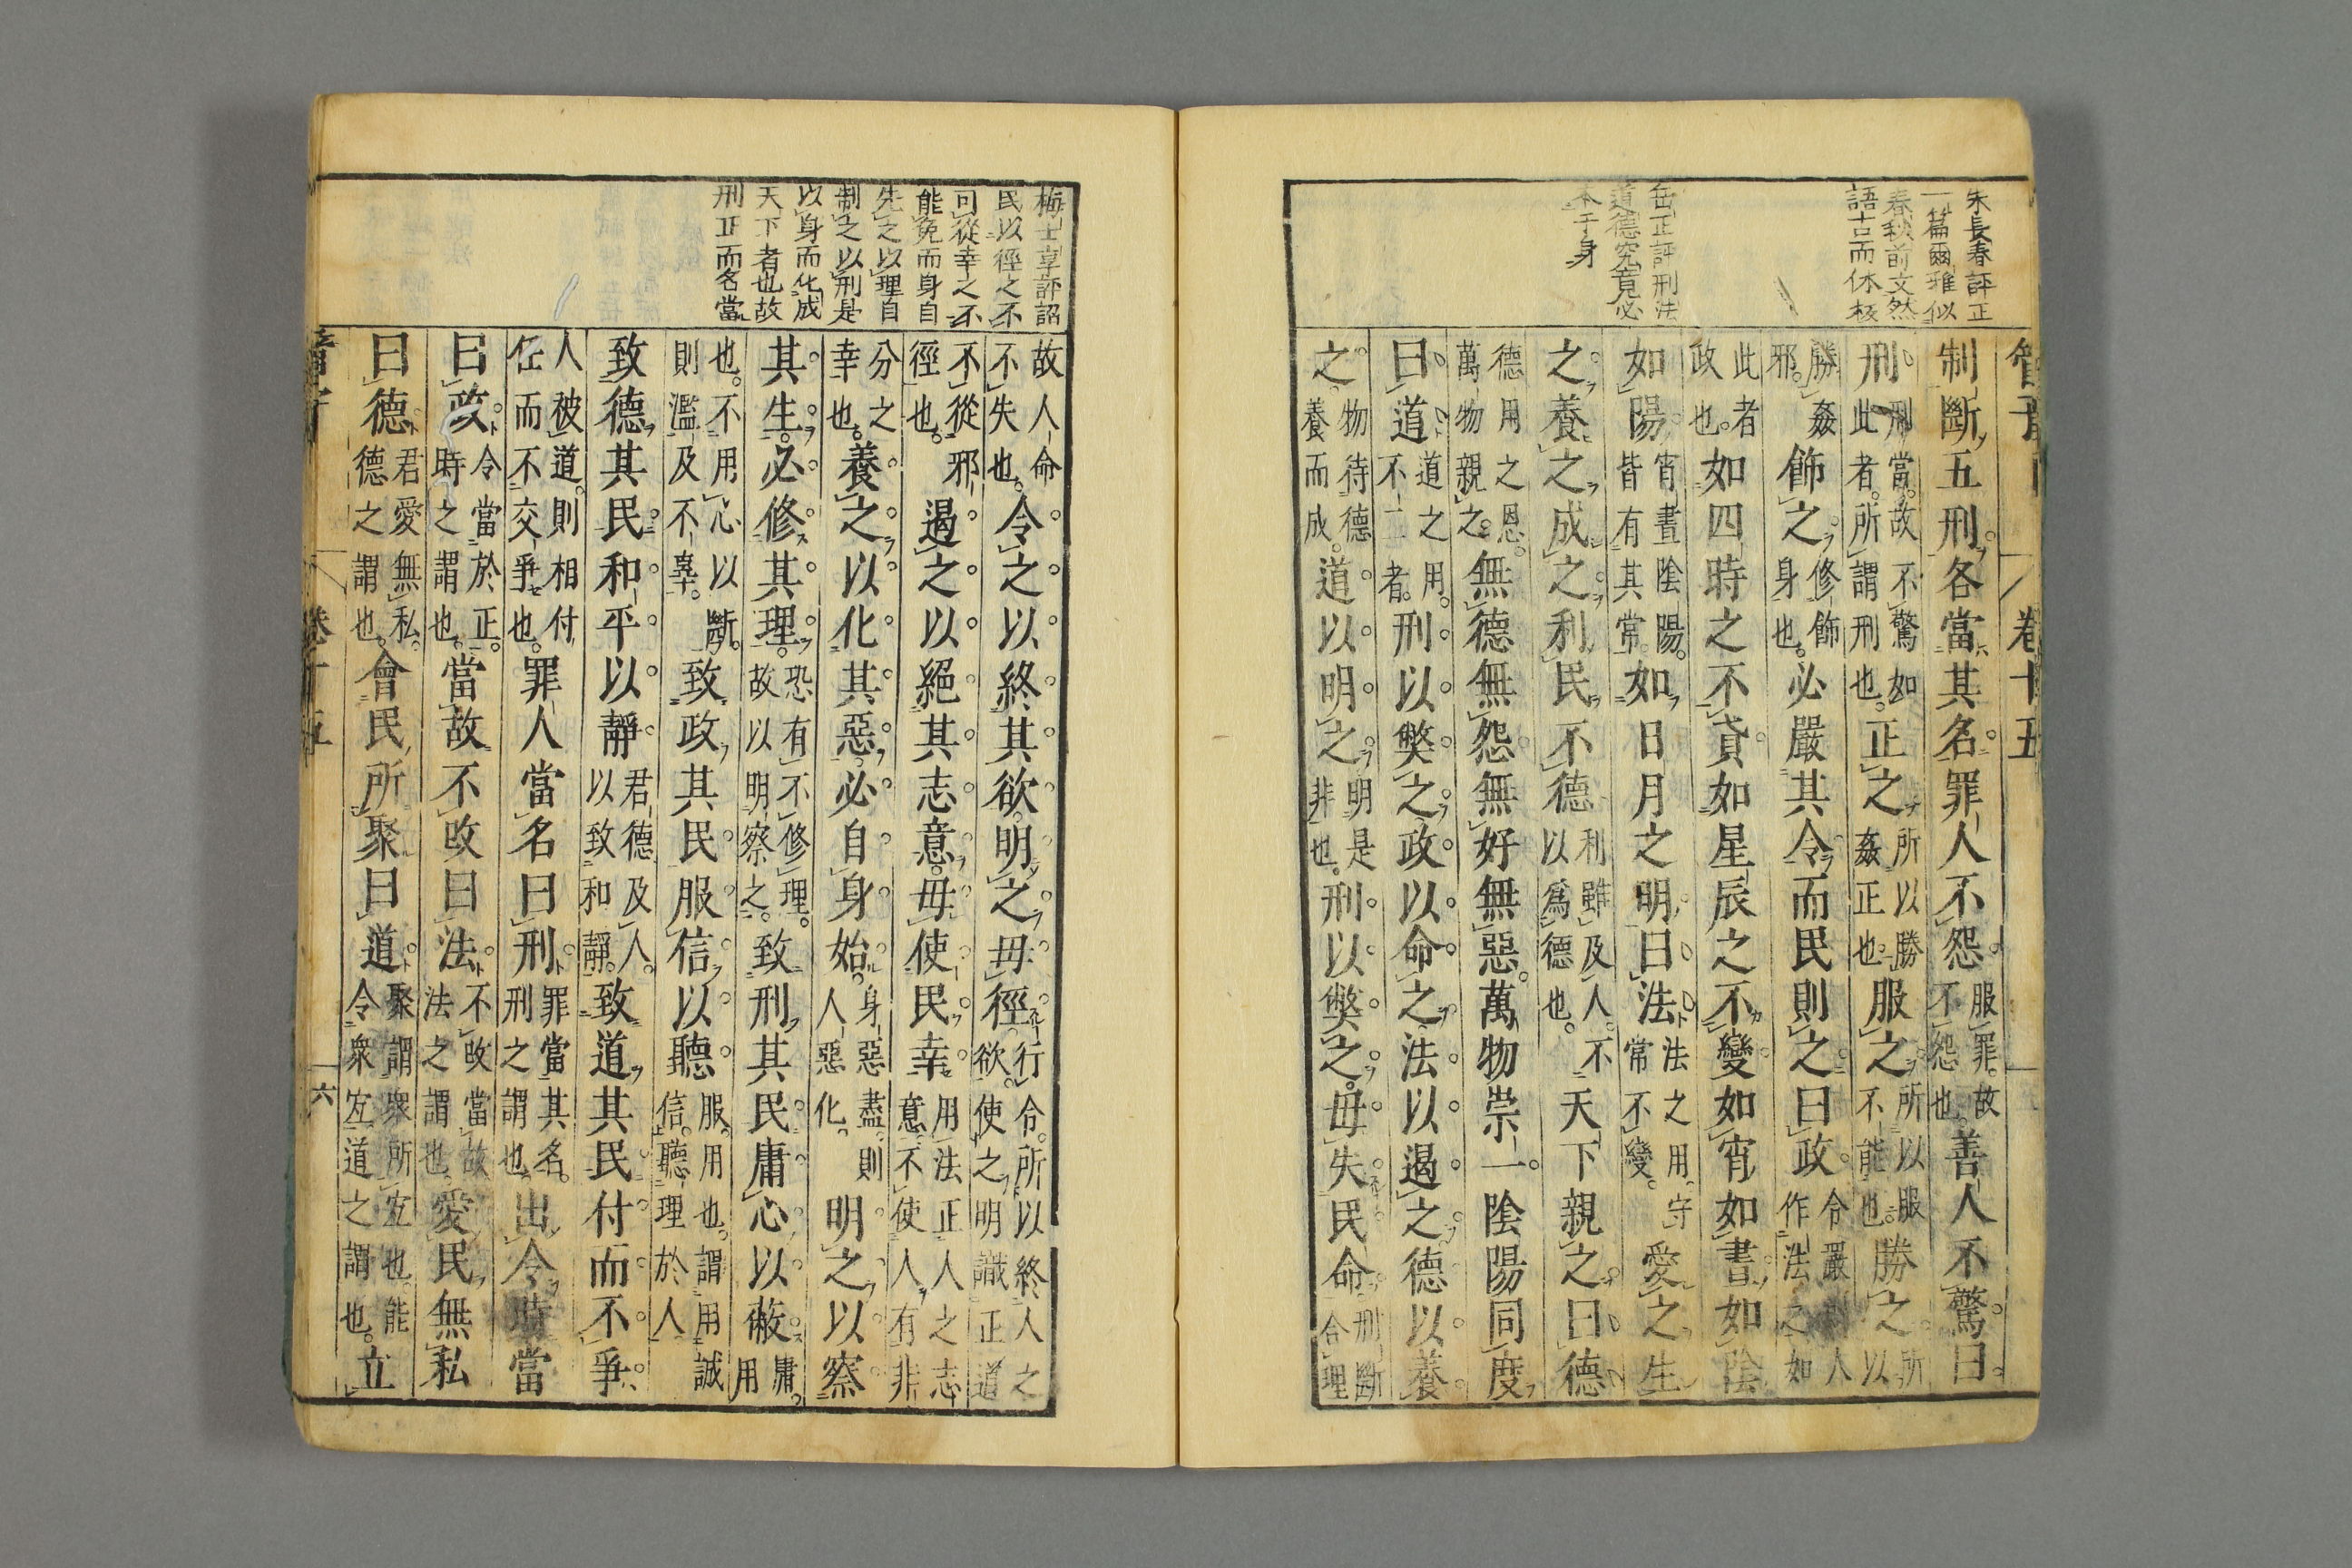 朱長春評正
一篇爾雅似
春秋前文然
語古而休核
岳正評刑法
道德究竟必
本于身
管子 卷十五
制斷五刑各當其名罪人不怨服罪故不怨也善人不驚曰
刑刑當故不驚如此者所謂刑也正之所以勝姦正也服之所以服不能也勝之所以
勝姦邪飾之修飾身也必嚴其令而民則之曰政令嚴則人作法之如
此者政也如四時之不貣如星辰之不變如宵如晝如陰
如陽宵晝陰陽皆有其常如日月之明曰法法之用守常不變愛之生
之養之成之利民不德利雖及人不以爲德也天下親之曰德
德用之恩萬物親之無德無怨無好無惡萬物崇一陰陽同度
曰道道之用不二者刑以獘之政以命之法以遏之德以養
之物待德養而成道以明之明是非也刑以獘之毋失民命刑斷合理
梅士享評詔
民以徑之不
可從幸之不
能免而身自
先之以理自
制之以刑是
以身而化成
天下者也故
刑正而名當
故人命不失也令之以終其欲明之毋徑行令所以終人之欲使之明識正道
不從邪徑也遏之以絕其志意毋使民幸用法正人之志意不使人有非
分之幸也養之以化其惡必自身始身惡盡則人惡化明之以察
其生必修其理恐有不修理故以明察之致刑其民庸心以蔽庸用
也不用心以斷則濫及不辜致政其民服信以聽服用也謂用誠信聽理於人
致德其民和平以靜君德及人以致和靜致道其民付而不爭
人被道則相付任而不交爭也罪人當名曰刑罪當其名刑之謂也出令時當
曰政令當於正時之謂也當故不改曰法不改當故法之謂也愛民無私
曰德君愛無私德之謂也會民所聚曰道聚謂衆所宜也能令衆宜道之謂也立
卷十五 六